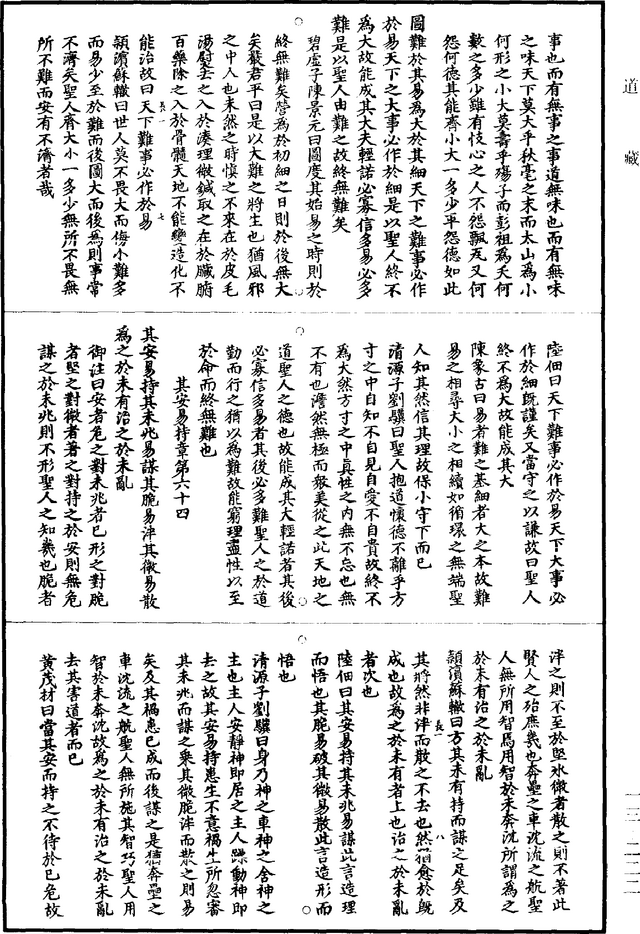 道藏
事也而有無事之事道無味也而有無味
之味天下莫大乎秋毫之末而太山為小
何形之小大莫壽乎殤子而彭祖為夭何
數之多少雖有忮心之人不怨飄瓦又何
怨何德其能齊小大一多少平怨德如此
圖難於其易為大於其細天下之難事必作
於易天下之大事必作於細是以聖人終不
為大故能成其大夫輕諾必寡信多易必多
難是以聖人由難之故終無難矣
碧虛子陳景元曰圖度其始易之時則於
終無難矣營為於初細之日則於後無大
矣嚴君平曰是以大難之將生也猶風邪
之中人也未然之時慎之不來在於皮毛
湯熨去之入於湊理微鍼取之在於臟腑
百藥除之入於骨髓天地不能變造化不
能治故曰天下難事必作於易
長一 七
潁濱蘇轍曰世人莫不畏大而侮小難多
而易少至於難而後圖大而後為則事常
不濟矣聖人齊大小一多少無所不畏無
所不難而安有不濟者哉
陸佃曰天下難事必作於易天下大事必
作於細既謹矣又當守之以謙故曰聖人
終不為大故能成其大
陳象古曰易者難之基細者大之本故難
易之相尋大小之相續如循環之無端聖
人知其然信其理故保小守下而已
清源子劉驥曰聖人抱道懷德不離乎方
寸之中自知不自見自愛不自貴故終不
為大然方寸之中真性之內無不忘也無
不有也澹然無極而眾美從之此天地之
道聖人之德也故能成其大輕諾者其後
必寡信多易者其後必多難聖人之於道
勤而行之猶以為難故能窮理盡性以至
於命而終無難也
其安易持章第六十四
其安易持其未兆易謀其脆易泮其微易散
為之於未有治之於未亂
御注曰安者危之對未兆者已形之對脆
者堅之對微者著之對持之於安則無危
謀之於未兆則不形聖人之知幾也脆者
泮之則不至於堅冰微者散之則不著此
賢人之殆庶幾也奔壘之車沈流之航聖
人無所用智焉用智於未奔沈所謂為之
於未有治之於未亂
潁濱蘇轍曰方其未有持而謀之足矣及
長一 八
其將然非泮而散之不去也然猶愈於既
成也故為之於未有者上也治之於未亂
者次也
陸佃曰其安易持其未兆易謀此言造理
而悟也其脆易破其微易散此言造形而
悟也
清源子劉驥曰身乃神之車神之舍神之
主也主人安靜神即居之主人躁動神即
去之故其安易持患生不意禍生所忽審
其未兆而謀之乘其微脆泮而散之則易
矣及其禍患已成而後謀之是猶奔壘之
車沈流之航聖人無所施其智巧聖人用
智於未奔沈故為之於未有治之於未亂
去其害道者而已
黃茂材曰當其安而持之不待於已危故